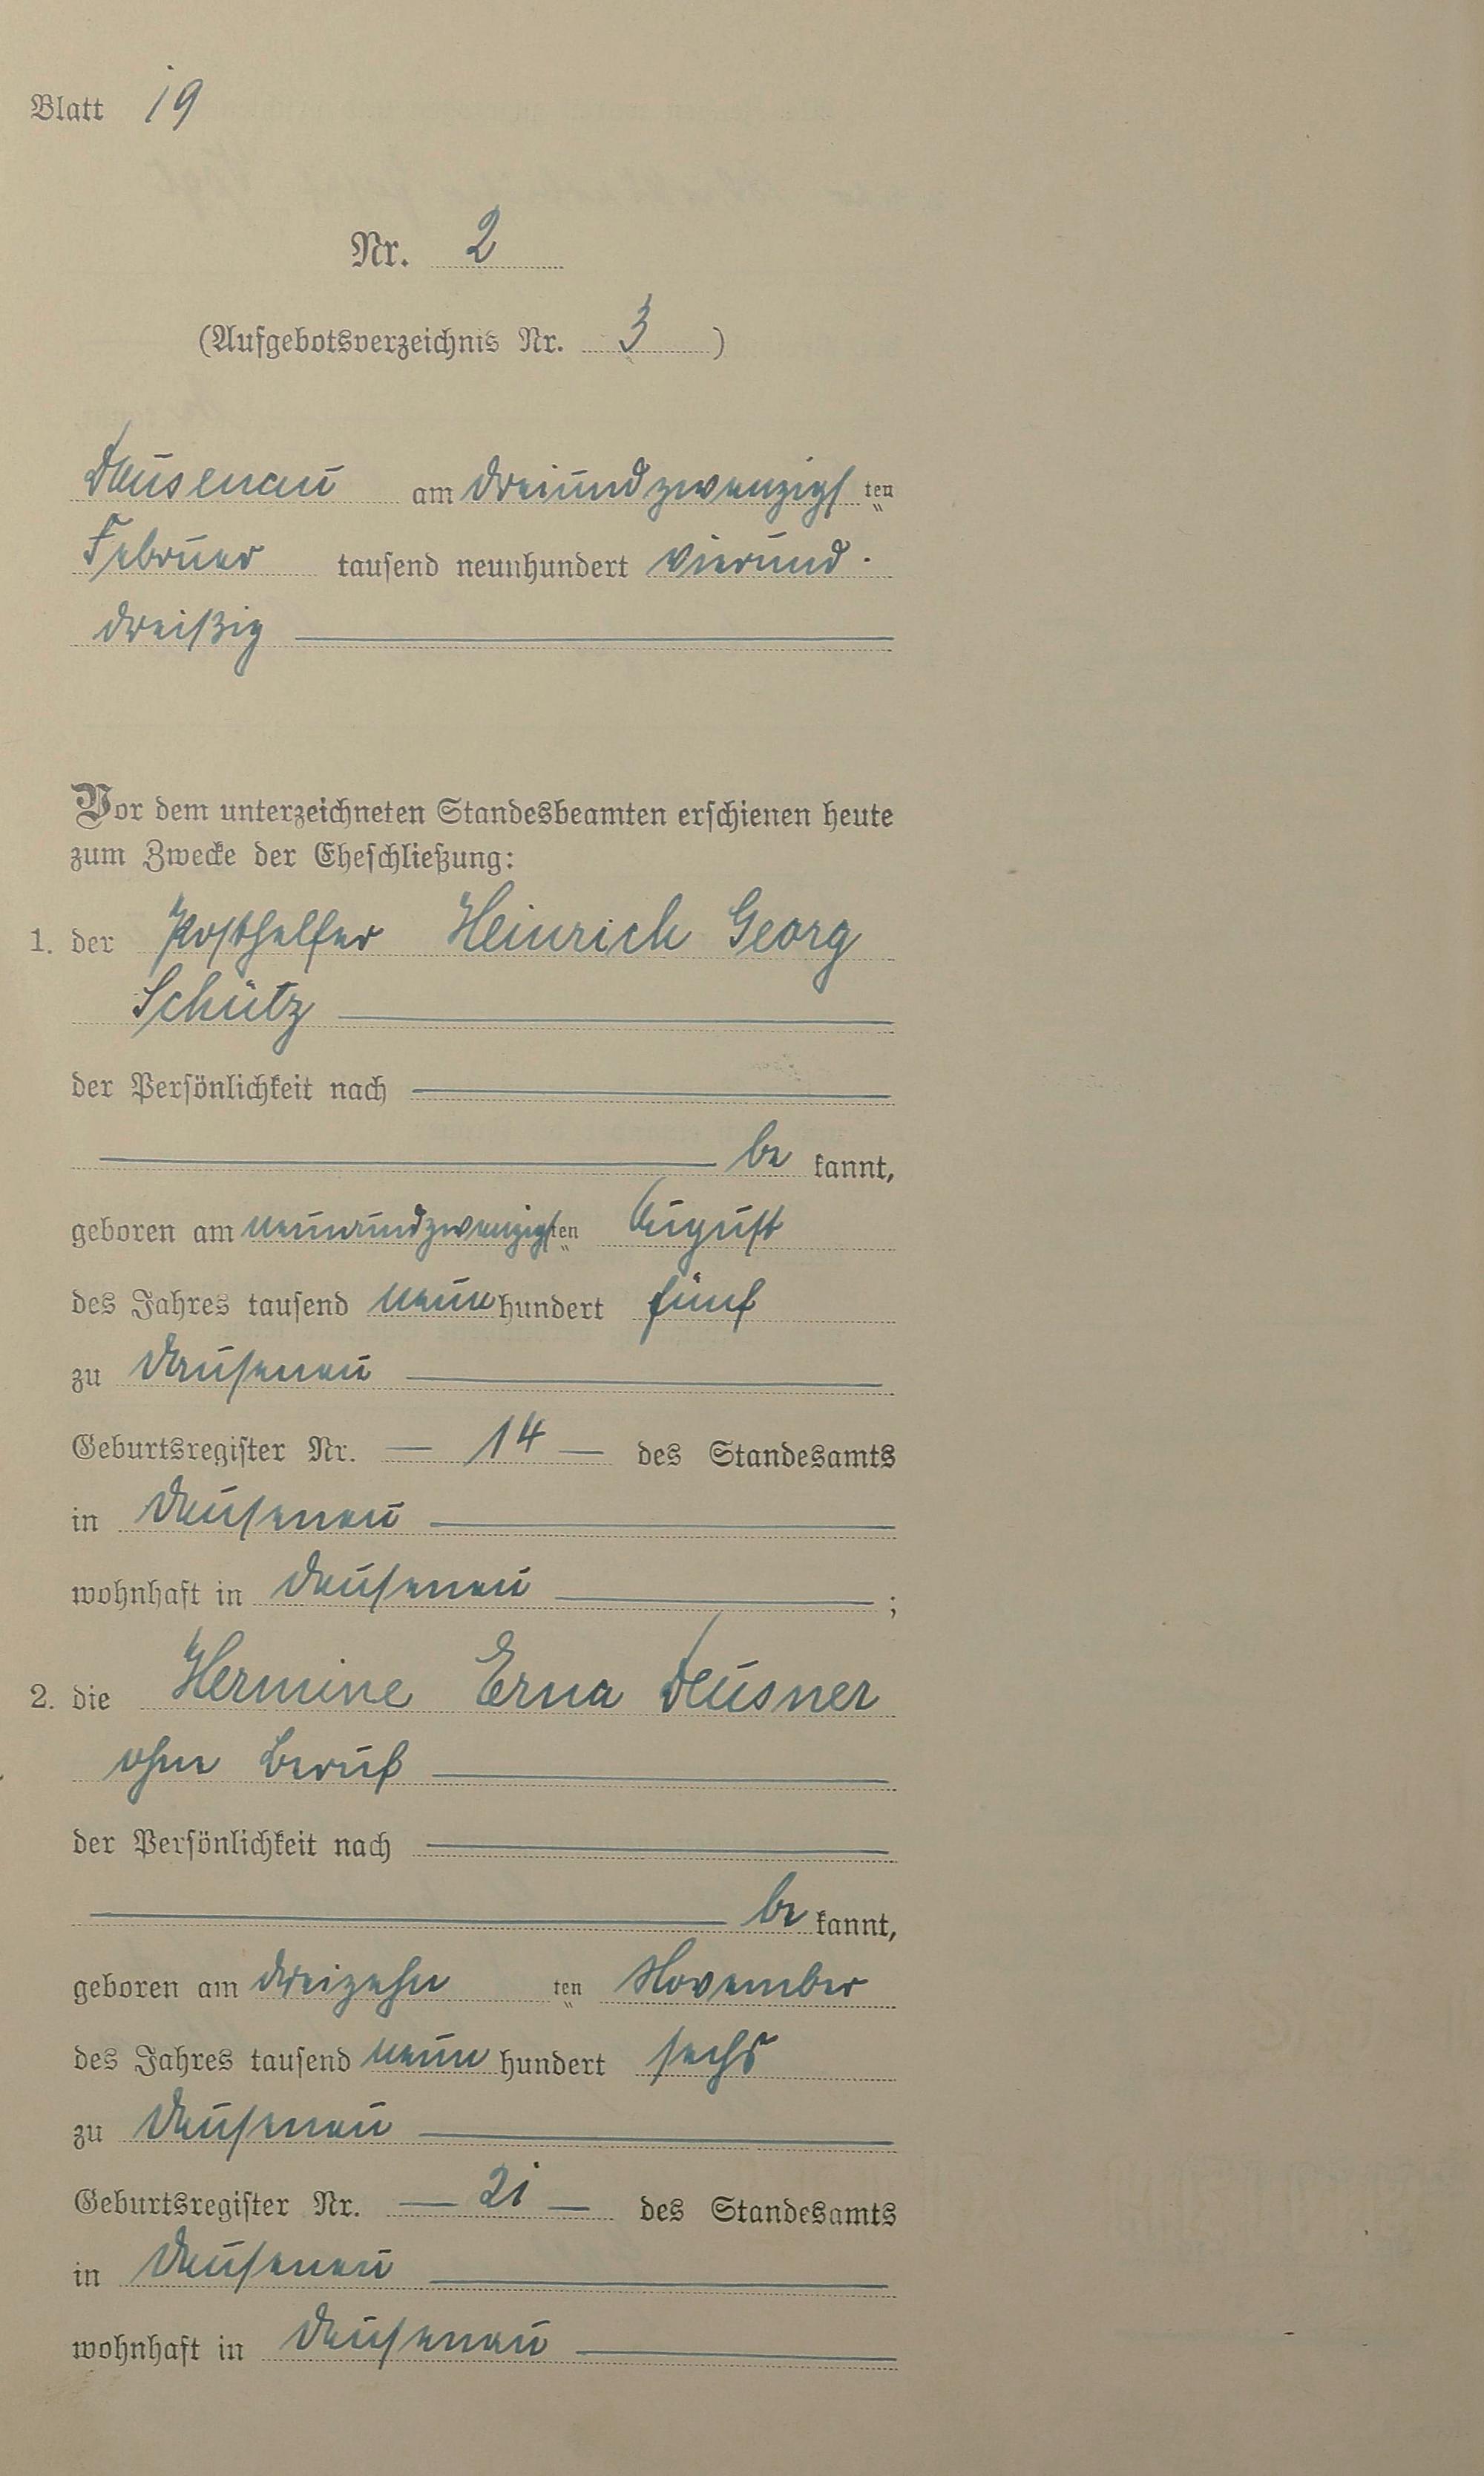 Blatt 19
Nr. 2
(Aufgebotsverzeichnis Nr. 3 )
Dausenau am dreiundzwanzigs ten
Februar tausend neunhundert vierund-
dreißig
Vor dem unterzeichneten Standesbeamten erschienen heute
zum Zwecke der Eheschließung:
1. der Posthelfer Heinrich Georg
Schütz
der Persönlichkeit nach
be kannt,
geboren am neunundzwanzigsten August
des Jahres tausend neun hundert fünf
zu Dausenau
Geburtsregister Nr. — 14 — des Standesamts
in Dausenau
wohnhaft in Dausenau ;
2. die Hermine Erna Deusner
ohne Beruf
der Persönlichkeit nach
be kannt,
geboren am dreizehn ten November
des Jahres tausend neun hundert sechs
zu Dausenau
Geburtsregister Nr. — 21 — des Standesamts
in Dausenau
wohnhaft in Dausenau